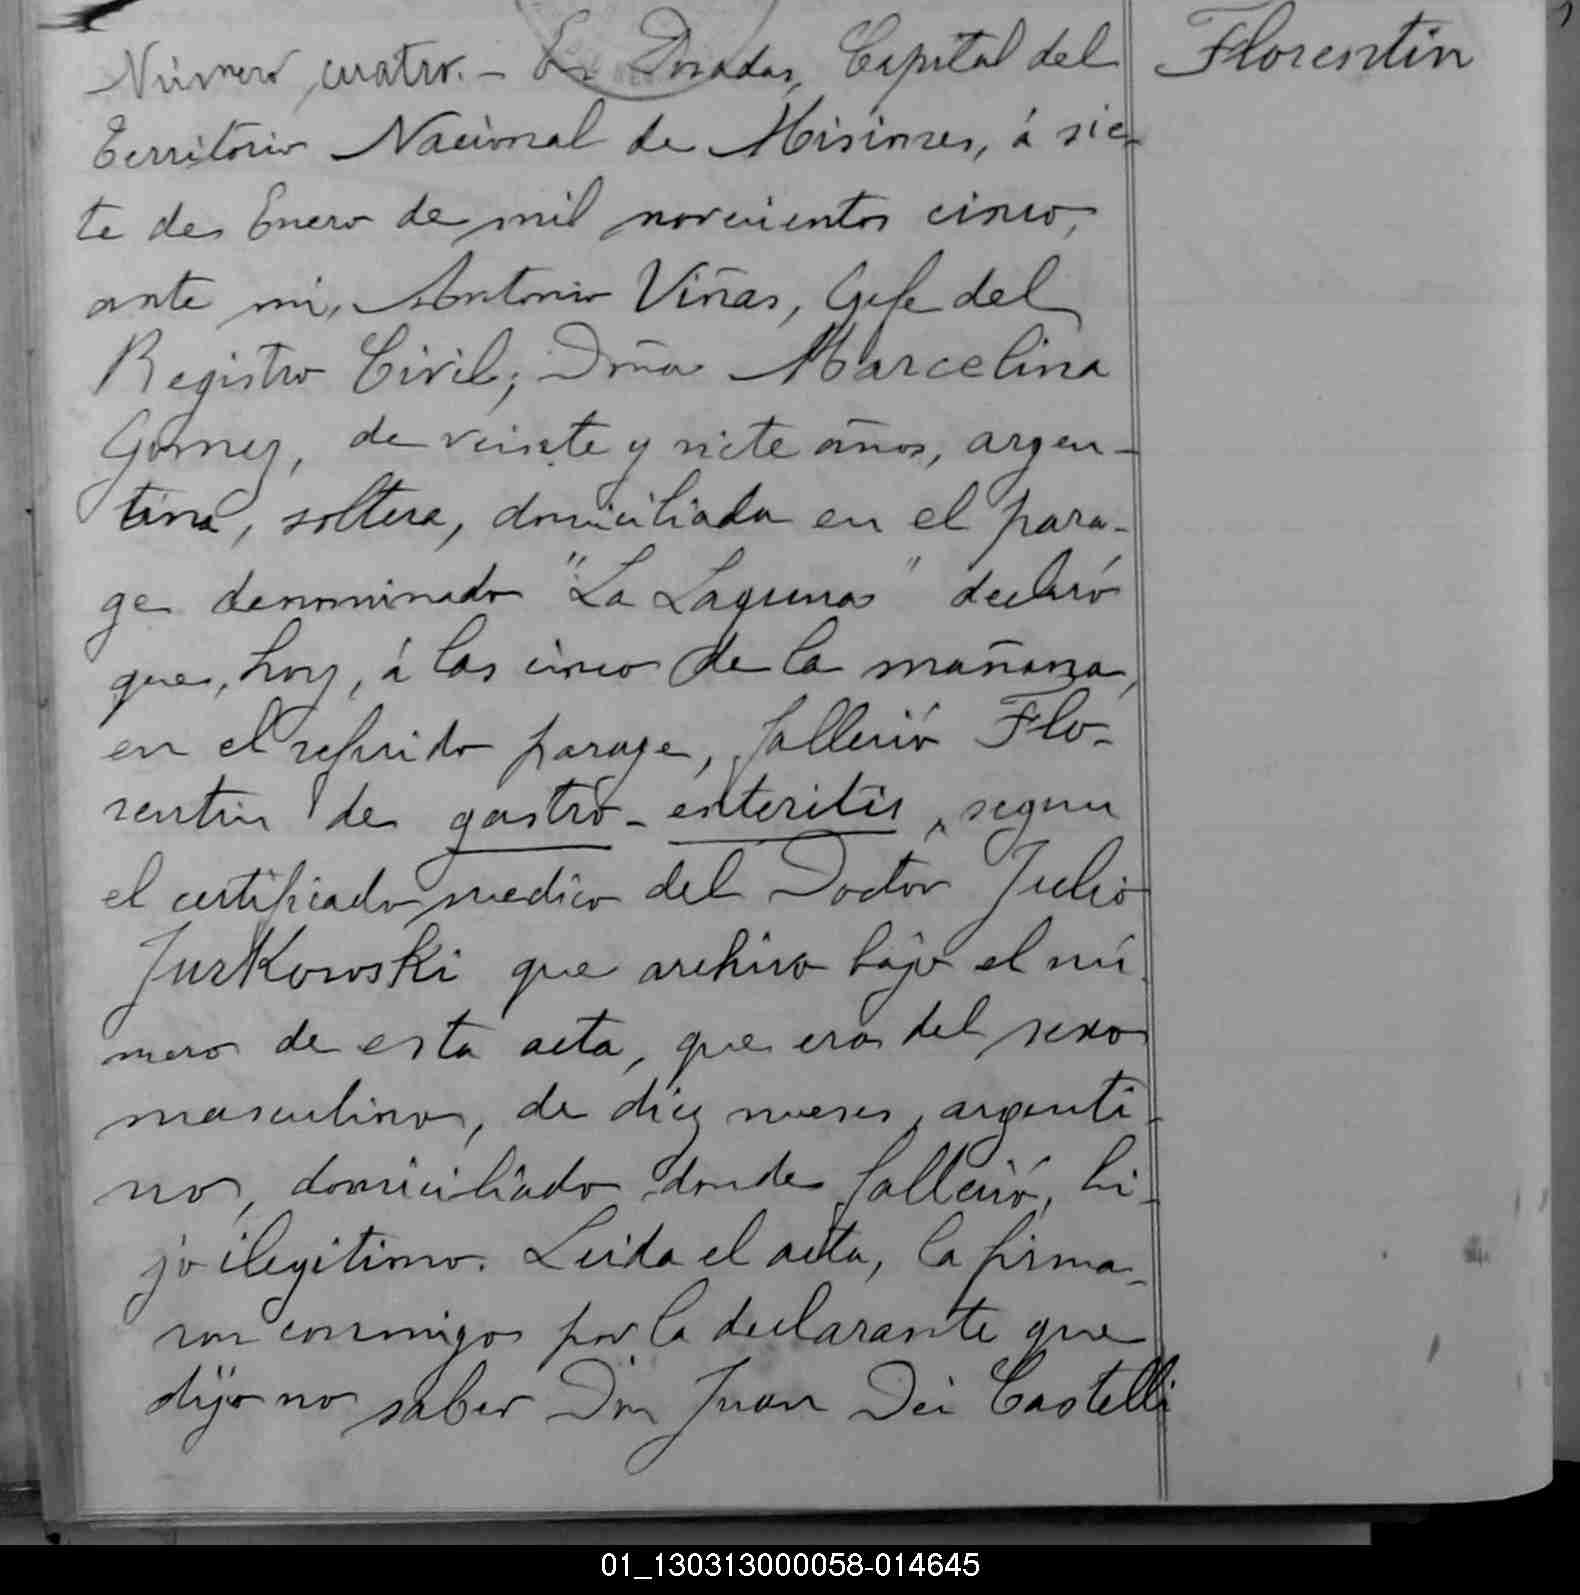 Número cuatro. - En Posadas, Capital del
Florentin
Territorio Nacional de Misiones, á sie-
te de Enero de mil novecientos cinco,
ante mi, Antonio Viñas, Gefe del
Registro Civil; Doña Marcelina
Gomez, de veinte y siete años, argen-
tina, soltera, domiciliada en el para-
ge denominado "La Laguna" declaró
que, hoy, á las cinco de la mañana,
en el referido parage, falleció Flo-
rentin de gastro-enteritis, segun
el certificado medico del Doctor Julio
Jurkowski que archivo bajo el nú
mero de esta acta, que era del sexo
masculino, de diez meses, argenti-
no, domiciliado donde falleció, hi-
jo ilegitimo. Leida el acta, la firma-
ron conmigo por la declarante que
dijo no saber Don Juan Dei Castelli
01_130313000058-014645